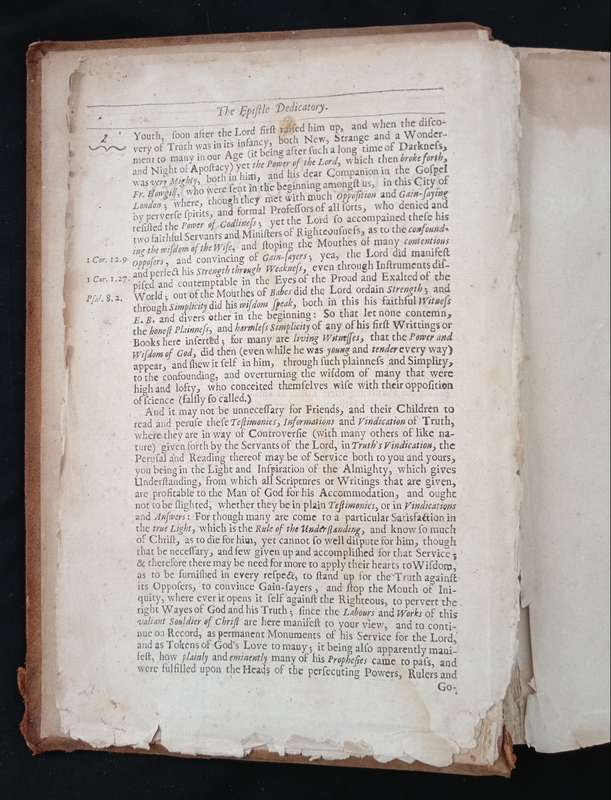 The Epiſtle Dedicatory.
2
Youth, ſoon after the Lord firſt raiſed him up, and when the diſco-
very of Truth was in its infancy, both New, Strange and a Wonder-
ment to many in our Age (it being after ſuch a long time of Darkneſs,
and Night of Apoſtacy) yet the Power of the Lord, which then broke forth,
was very Mighty, both in him, and his dear Companion in the Goſpel
Fr. Howgill, who were ſent in the beginning amongſt us, in this City of
London; where, though they met with much Oppoſition and Gain-ſaying
by perverſe ſpirits, and formal Profeſſors of all ſorts, who denied and
reſiſted the Power of Godlineſs; yet the Lord ſo accompained theſe his
two faithful Servants and Miniſters of Righteouſneſs, as to the confound-
ing the wiſdom of the Wiſe, and ſtoping the Mouthes of many contentious
1 Cor. 12.9. Oppoſers, and convincing of Gain-ſayers; yea, the Lord did manifeſt
and perfect his Strength through Weakneſs, even through Inſtruments diſ-
1 Cor. 1.27. piſed and contemptable in the Eyes of the Proud and Exalted of the
Pſal. 8.2. World; out of the Mouthes of Babes did the Lord ordain Strength; and
through Simplicity did his wiſdom ſpeak, both in this his faithful Witneſs
E. B. and divers other in the beginning: So that let none contemn,
the honeſt Plainneſs, and harmleſs Simplicity of any of his firſt Writtings or
Books here inſerted; for many are living Witneſſes, that the Power and
Wiſdom of God, did then (even while he was young and tender every way)
appear, and ſhew it ſelf in him, through ſuch plainneſs and Simplity,
to the confounding, and overturning the wiſdom of many that were
high and lofty, who conceited themſelves wiſe with their oppoſition
of ſcience (falſly ſo called.)
And it may not be unneceſſary for Friends, and their Children to
read and peruſe theſe Teſtimonies, Informations and Vindication of Truth,
where they are in way of Controverſie (with many others of like na-
ture) given forth by the Servants of the Lord, in Truth's Vindication, the
Peruſal and Reading thereof may be of Service both to you and yours,
you being in the Light and Inſpiration of the Almighty, which gives
Underſtanding, from which all Scriptures or Writings that are given,
are profitable to the Man of God for his Accommodation, and ought
not to be ſlighted, whether they be in plain Teſtimonies, or in Vindications
and Anſwers: For though many are come to a particular Satisfaction in
the true Light, which is the Rule of the Underſtanding, and know ſo much
of Chriſt, as to die for him, yet cannot ſo well diſpute for him, though
that be neceſſary, and few given up and accompliſhed for that Service;
& therefore there may be need for more to apply their hearts to Wiſdom,
as to be furniſhed in every reſpect, to ſtand up for the Truth againſt
its Oppoſers, to convince Gain-ſayers, and ſtop the Mouth of Ini-
quity, where ever it opens it ſelf againſt the Righteous, to pervert the
right Wayes of God and his Truth; ſince the Labours and Works of this
valiant Souldier of Chriſt are here manifeſt to your view, and to conti-
nue on Record, as permanent Monuments of his Service for the Lord,
and as Tokens of God's Love to many; it being alſo apparently mani-
feſt, how plainly and eminently many of his Propheſies came to paſs, and
were fulfilled upon the Heads of the perſecuting Powers, Rulers and
Go-